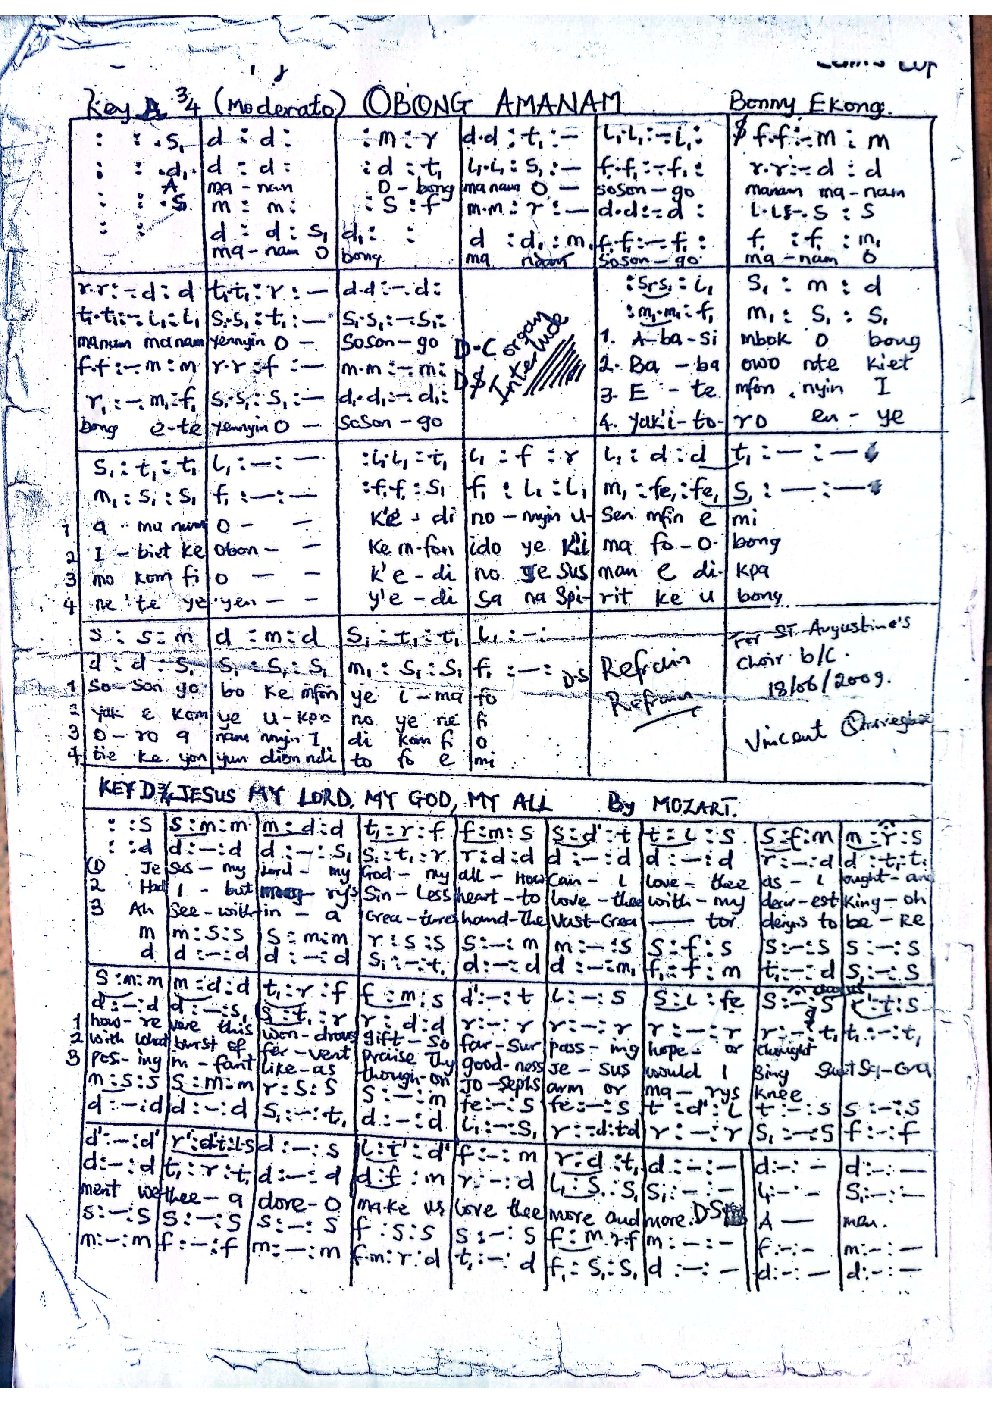 Key A 3/4 (Moderato) OBONG AMANAM Bonny Ekong.
: : .S₁ | d : d : | : m : r | d.d : t₁ : — | l₁.l₁ : — l₁ : | $ f.f : — m : m
: : .d₁ | d : d : | : d : t₁ | l₁.l₁ : S₁ : — | f₁.f₁ : — f₁ : | r.r : — d : d
A | ma - nam | O - bong | manam O — | soson - go | manam ma - nam
: : .S | m : m : | : S : f | m.m : r : — | d.d : — d : | l.l : — S : S
: : | d : d : S₁ | d₁ : : | d : d₁ : m₁ | f₁.f₁ : — f₁ : | f₁ : f₁ : m₁
ma - nam O | bong | ma nam | soson - go | ma - nam O
r.r : — d : d | t₁.t₁ : r : — | d.d : — d : | : S₁.S₁ : l₁ | S₁ : m : d
t₁.t₁ : — l₁ : l₁ | S₁.S₁ : t₁ : — | S₁.S₁ : — S₁ : | : m₁.m₁ : f₁ | m₁ : S₁ : S₁
manam manam | yennyin O — | soson - go | D.C organ Interlude | 1. A - ba - si | mbok O bong
f.f : — m : m | r.r : f : — | m.m : — m : | D$ | 2. Ba - ba | owo nte kiet
r₁ : — m₁ : f₁ | S₁.S₁ : S₁ : — | d₁.d₁ : — d₁ : | 3. E - te | mfon nyin I
bong e - te | yennyin O — | soson - go | 4. Yak'i - to - | ro en - ye
S₁ : t₁ : t₁ | l₁ : — : — | : l₁.l₁ : t₁ | l₁ : f : r | l₁ : d : d | t₁ : — : —
m₁ : S₁ : S₁ | f₁ : — : — | : f₁.f₁ : S₁ | f₁ : l₁ : l₁ | m₁ : fe₁ : fe₁ | S₁ : — : —
1 a ma nam | O - — | K'e - di | no - nnyin u - | Sen mfin e | mi
2 I - biet ke | obon - — | Ke m - fon | ido ye | ma fo - o - | bong
3 mo kom fi | o — — | k'e - di | no ye Sus | man e di - | kpa
4 ne te ye | yen - — | y'e - di | Sa na Spi - | rit ke u | bong
S : S : m | d : m : d | S₁ : t₁ : t₁ | l₁ : — :
d : d : S₁ | S₁ : S₁ : S₁ | m₁ : S₁ : S₁ | f₁ : — : DS | Refrain
1 So - Son go | bo ke mfon | ye i - ma | fo | Refrain
2 yak e kom | ye u - kpo | no ye ne | fi
3 O - ro a | nam nnyin I | di kom fi | o
4 tie ke yon | yun dion ndi | to fo e | mi
For ST. Augustine's
Choir b/c.
18/06/2009.
Vincent
KEY D 3/4 JESUS MY LORD, MY GOD, MY ALL By MOZART.
: : S | S : m : m | m : d : d | t₁ : r : f | f : m : S | S : d' : t | t : l : S | S : f : m | m : r : S
: : d | d : — : d | d : — : S₁ | S₁ : t₁ : r | r : d : d | d : — : d | d : — : d | r : — : d | d : t₁ : t₁
① Je | Sus - my | Lord - my | God - my | all - How | Can - I | love - thee | as - I | ought - and
2 Had | I - but | rys | Sin - Less | heart - to | love - thee | with - my | dear - est | King - oh
3 Ah | See - with | in - a | Crea - ture | hand - The | Vast - Crea | — tor | deigns to | be - Re
m | m : S : S | S : m : m | r : S : S | S : — : m | m : — : S | S : f : S | S : — : S | S : — : S
d | d : — : d | d : — : d | S₁ : — : t₁ | d : — : d | d : — : m₁ | f₁ : f : m | t₁ : — : d | S₁ : — : S
S : m : m | m : d : d | t₁ : r : f | f : m : S | d' : — : t | l : — : S | S : l : fe | S : — : S | r' : t : S
d : — : d | d : — : S₁ | S₁ : t₁ : r | r : d : d | r : — : r | r : — : r | r : — : r | r : — : t₁ | t₁ : — : t₁
1 how - re | vere this | won - drous | gift - So | far - Sur | pass - ing | hope - or | thought
2 with what | burst of | fer - vent | praise Thy | good - ness | Je - sus | would I | Sing Sweet Sa - Cra
3 pos - ing | in - fant | like - as | though on | Jo - Sephs | arm or | ma - rys | knee
m : S : S | S : m : m | r : S : S | S : — : m | fe : — : S | fe : — : S | t : d' : l | t : — : S | S : — : S
d : — : d | d : — : d | S₁ : — : t₁ | d : — : d | l₁ : — : S₁ | r : — d : t d | r : — : r | S₁ : — : S | f : — : f
d' : — : d' | r' : d' t : l S | d : — : S | l : t' : d' | f : — : m | r : d : t₁ | d : — : — | d : — : — | d : — : —
d : — : d | t₁ : r : t₁ | d : — : d | d : f : m | r : — : d | l₁ : S₁ : S₁ | S₁ : — : — | l₁ : — : — | S₁ : — : —
ment we | thee - a | dore - O | make us | love thee | more and | more. DS | A — | men.
S : — : S | S : — : S | S : — : S | f : S : S | S : — : S | f : m : r f | m : — : — | f : — : — | m : — : —
m : — : m | f : — : f | m : — : m | f.m : r : d | t₁ : — : d | f₁ : S₁ : S₁ | d : — : — | d : — : — | d : — : —